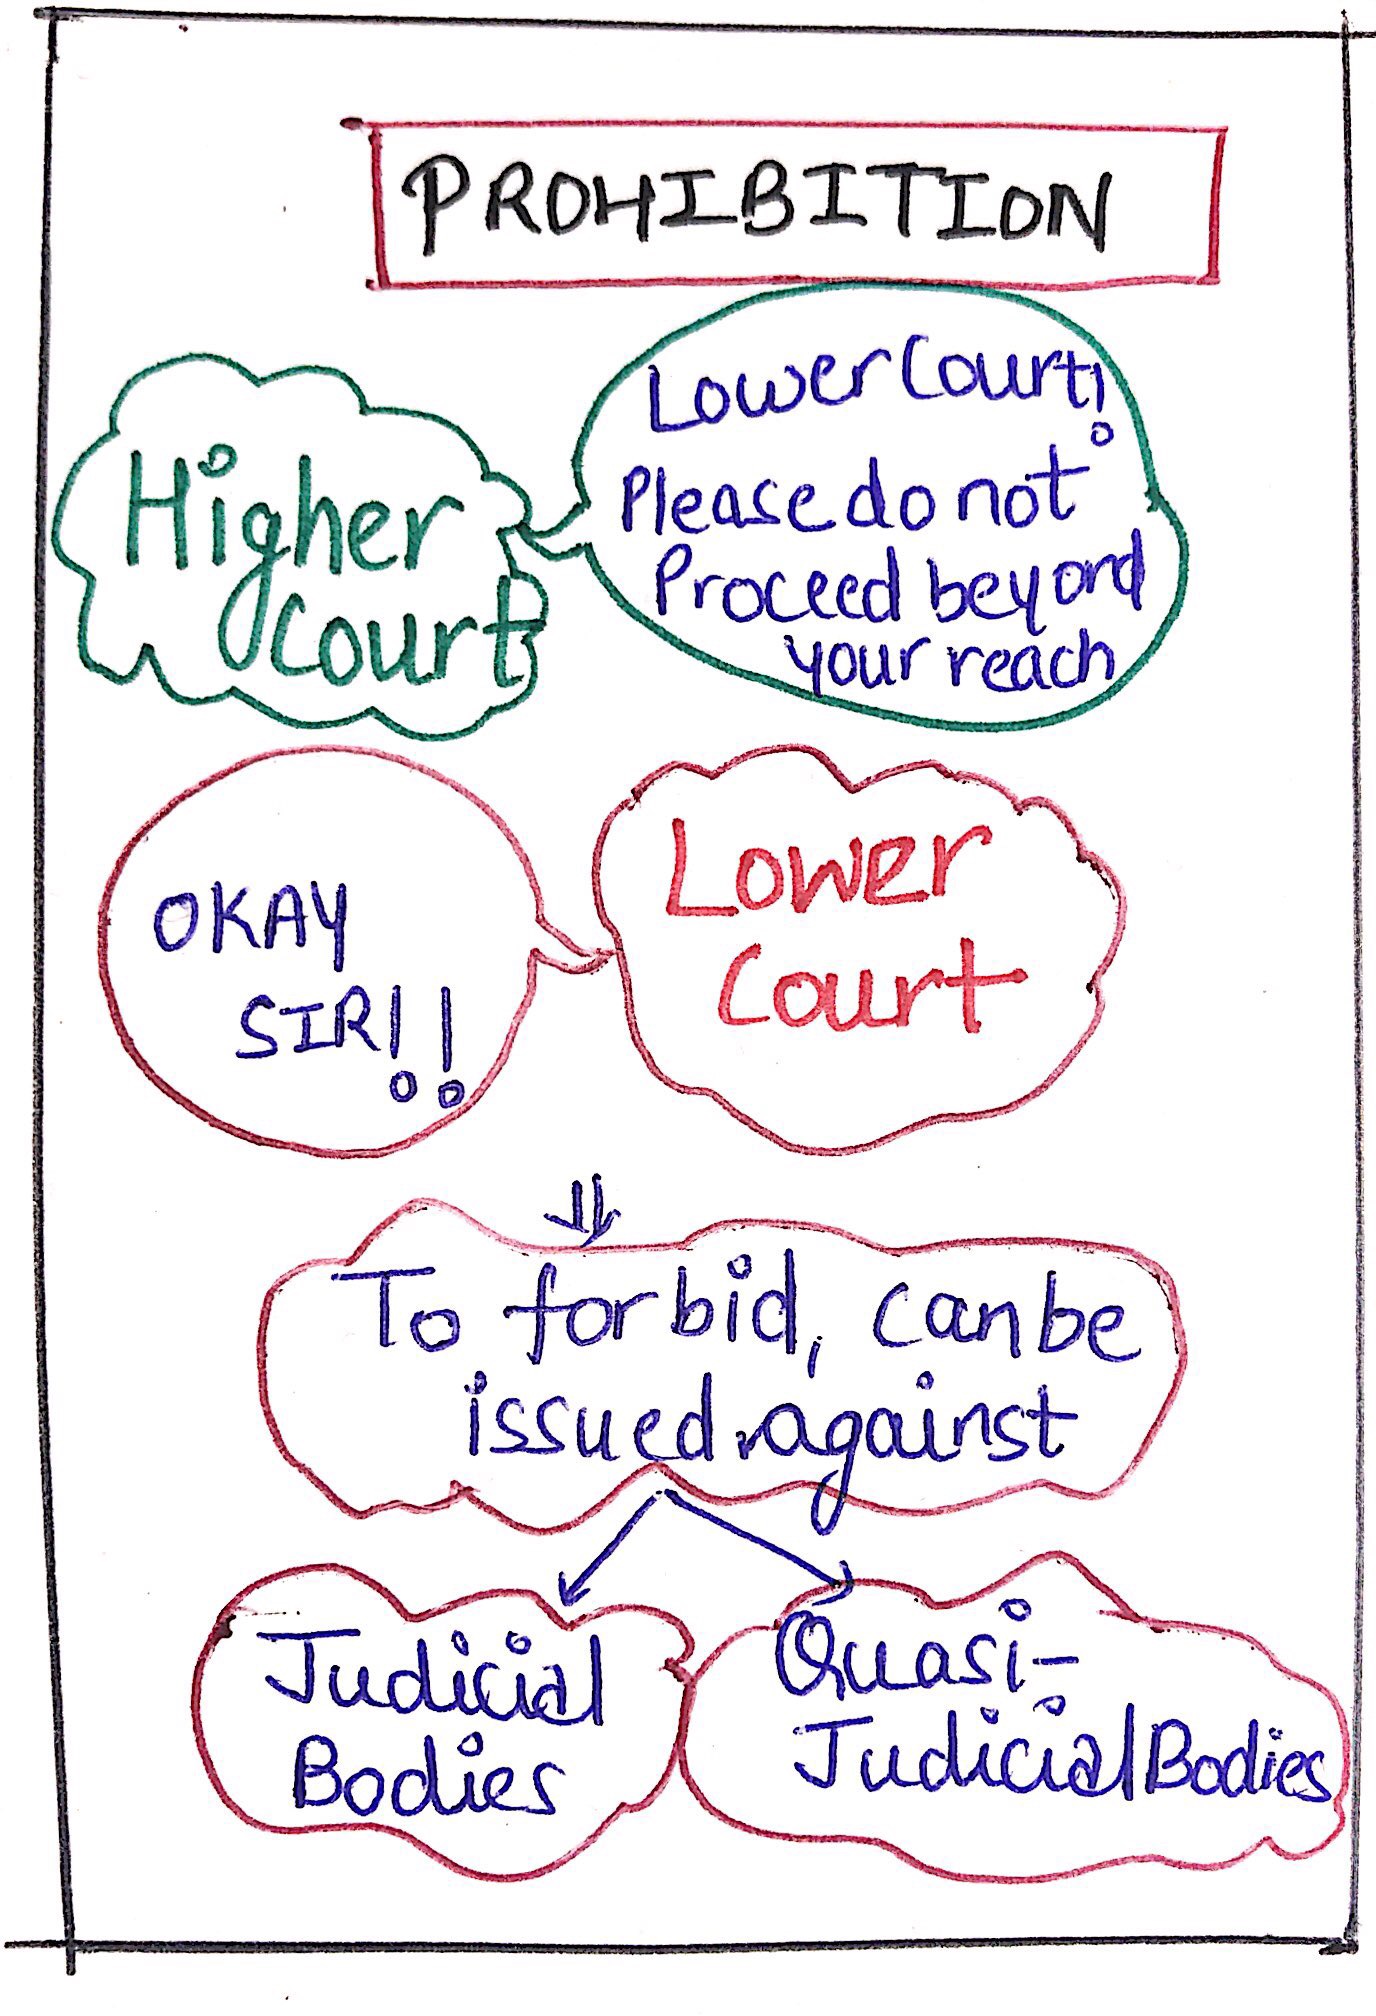 PROHIBITION
Higher
Court
Lower Court!
Please do not
Proceed beyond
your reach
OKAY
SIR!!
Lower
Court
To forbid, can be
issued against
Judicial
Bodies
Quasi-
Judicial Bodies